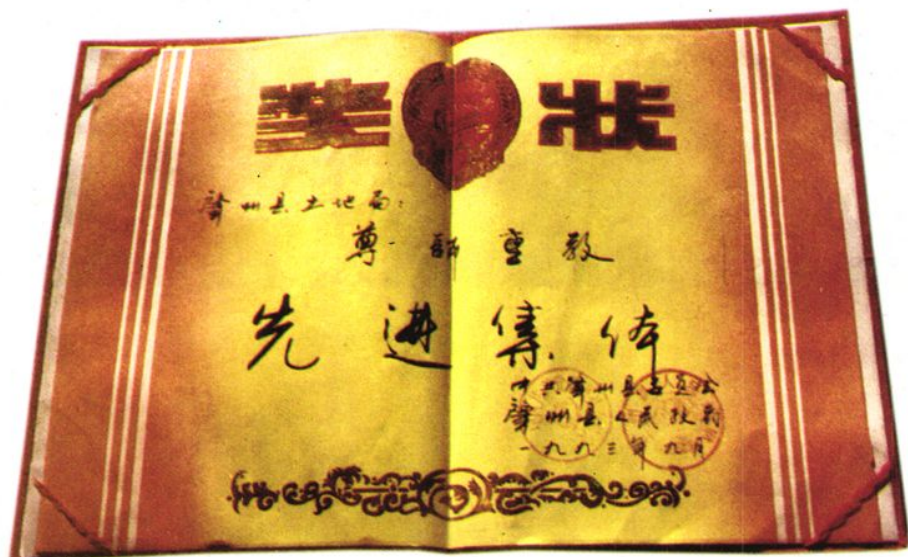 奖状
肇州县土地局：
尊师重教
先进集体
中共肇州县委员会
肇州县人民政府
一九九三年九月